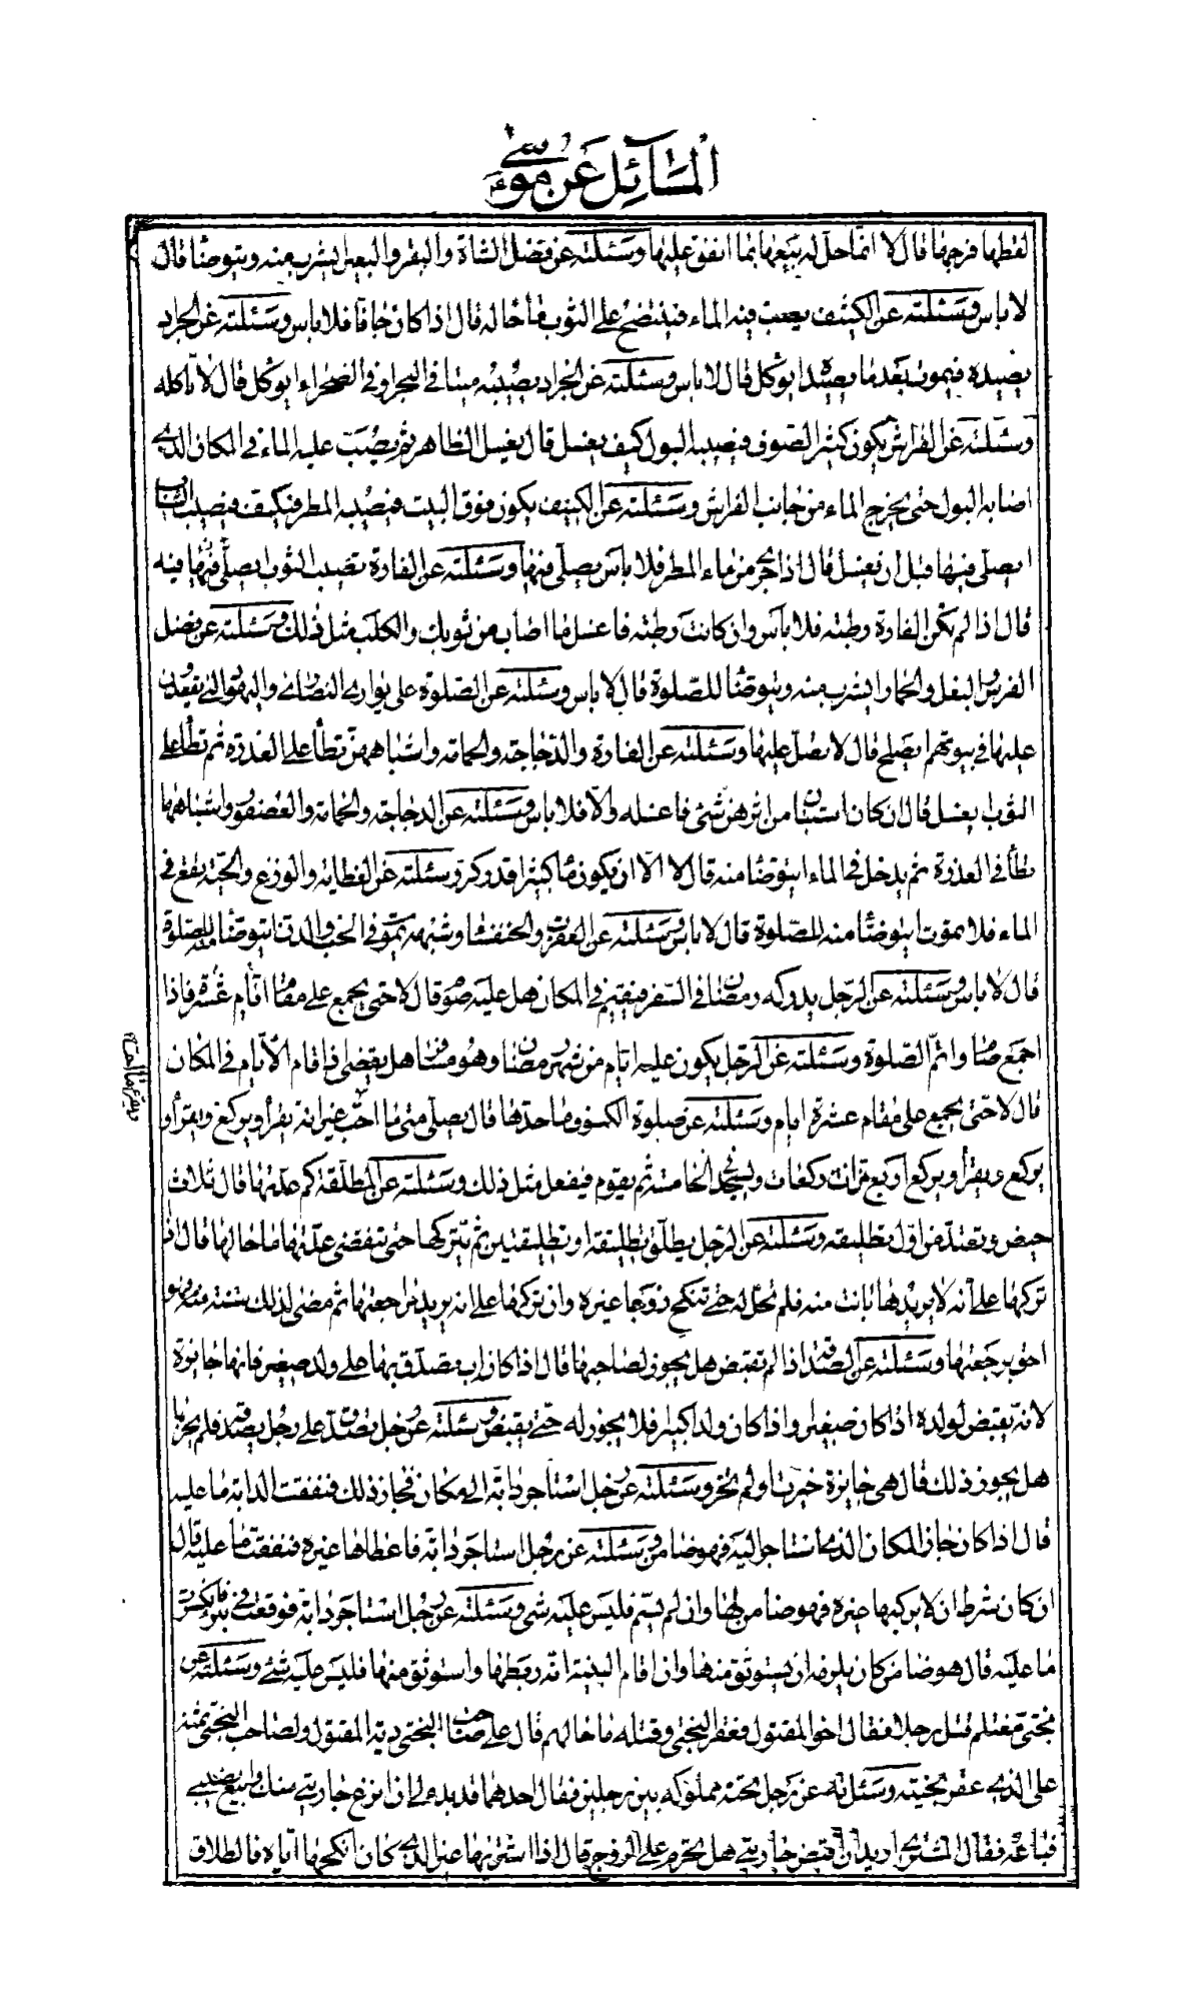 المسائل عن موسى
لقطها فرجها قال لا انما حل له بيعها بما انفق عليها وسئلته عن فضل الشاة والبقر والبعير ايشرب منه ويتوضأ قال
لا باس وسئلته عن الكنيف يصب فيه الماء فينتضح على الثوب ما حاله قال اذا كان جافا فلا باس وسئلته عن الجراد
يصيده فيموت بعد ما يصيد ايوكل قال لا باس وسئلته عن الجراد يصيبه ميتا في البحر او في الصحراء ايوكل قال لا تاكله
وسئلته عن الفراش يكون كثير الصوف فيصيبه البول كيف يغسل قال يغسل الظاهر ثم يصب عليه الماء في المكان الذي
اصابه البول حتى يخرج الماء من جانب الفراش وسئلته عن الكنيف يكون فوق البيت فيصيبه المطر فيكف فيصيب الثياب
ايصلى فيها قبل ان تغسل قال اذا جرى من ماء المطر فلا باس يصلى فيها وسئلته عن الفارة تصيب الثوب يصلى فيه
قال اذا لم تكن الفارة رطبة فلا باس وان كانت رطبة فاغسل ما اصاب من ثوبك والكلب مثل ذلك وسئلته عن فضل
الفرس والبغل والحمار ايشرب منه ويتوضأ للصلوة قال لا باس وسئلته عن الصلوة على بواري النصارى واليهود التي يقعدون
عليها في بيوتهم ايصلح قال لا تصل عليها وسئلته عن الفارة والدجاجة والحمامة واشباههن تطأ على العذرة ثم تطأ على
الثوب ايغسل قال ان كان استبان من اثرهن شئ فاغسله والا فلا باس وسئلته عن الدجاجة والحمامة والعصفور واشباهها
تطأ في العذرة ثم يدخل في الماء ايتوضأ منه قال لا الا ان يكون ماء كثيرا قدر كر وسئلته عن العظاية والوزغ والحية يقع في
الماء فلا يموت ايتوضأ منه للصلوة قال لا باس وسئلته عن العقرب والخنفساء وشبهه يموت في الجب والدن ايتوضأ منه للصلوة
قال لا باس وسئلته عن الرجل يدركه رمضان في السفر فيقيم في المكان هل عليه صوم قال لا حتى يجمع على مقام عشرة ايام فاذا
اجمع صام واتم الصلوة وسئلته عن الرجل يكون عليه ايام من شهر رمضان وهو مسافر هل يقضي اذا اقام الايام في المكان
قال لا حتى يجمع على مقام عشرة ايام وسئلته عن صلوة الكسوف ما حدها قال يصلي متى ما احب غير انه يقرأ ويركع ويقرأ و
يركع ويقرأ ويركع اربع ركعات ويسجد في الخامسة ثم يقوم فيفعل مثل ذلك وسئلته عن المطلقة كم عدتها قال ثلاث
حيض وتعتد من اول تطليقة وسئلته عن الرجل يطلق تطليقة او تطليقتين ثم يتركها حتى تنقضي عدتها ما حالها قال اذا
تركها على انه لا يريدها بانت منه فلم تحل له حتى تنكح زوجا غيره وان تركها على انه يريد مراجعتها ثم مضى لذلك سنة فهو
احق برجعتها وسئلته عن الصدقة اذا لم تقبض هل يجوز لصاحبها قال اذا كان اب تصدق بها على ولد صغير فانها جايزة
لانه يقبض لولده اذا كان صغيرا واذا كان ولدا كبيرا فلا يجوز له حتى يقبض وسئلته عن رجل تصدق على رجل بصدقة فلم يحزها
هل يجوز ذلك قال هي جايزة حيزت او لم تحز وسئلته عن رجل استاجر دابة الى مكان فجاز ذلك فنفقت الدابة ما عليه
قال اذا كان جاز المكان الذي استاجر اليه فهو ضامن وسئلته عن رجل استاجر دابة فاعطاها غيره فنفقت ما عليه قال
ان كان شرط ان لا يركبها غيره فهو ضامن لها وان لم يسم فليس عليه شئ وسئلته عن رجل استاجر دابة فوقعت في بئر فانكسرت
ما عليه قال هو ضامن كان يلزمه ان يستوثق منها وان اقام البينة انه ربطها واستوثق منها فليس عليه شئ وسئلته عن
بختي مغتلم قتل رجلا فقال اخو المقتول فعقر البختي وقتله ما حالهم قال على صاحب البختي دية المقتول ولصاحب البختي ثمنه
على الذي عقر بختيه وسئلته عن رجل تحته مملوكة بين رجلين فقال احدهما قد بدا لي ان انزع جاريتي منك وابيع نصيبي
فباعه فقال المشتري اريد ان اقبض جاريتي هل يحرم على الزوج قال اذا اشتريها غير الذي كان انكحها اياه فالطلاق